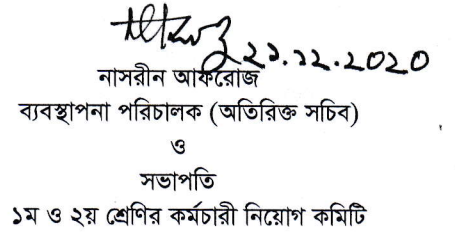 ২১.১২.২০২০
নাসরীন আফরোজ
ব্যবস্থাপনা পরিচালক (অতিরিক্ত সচিব)
ও
সভাপতি
১ম ও ২য় শ্রেণির কর্মচারী নিয়োগ কমিটি